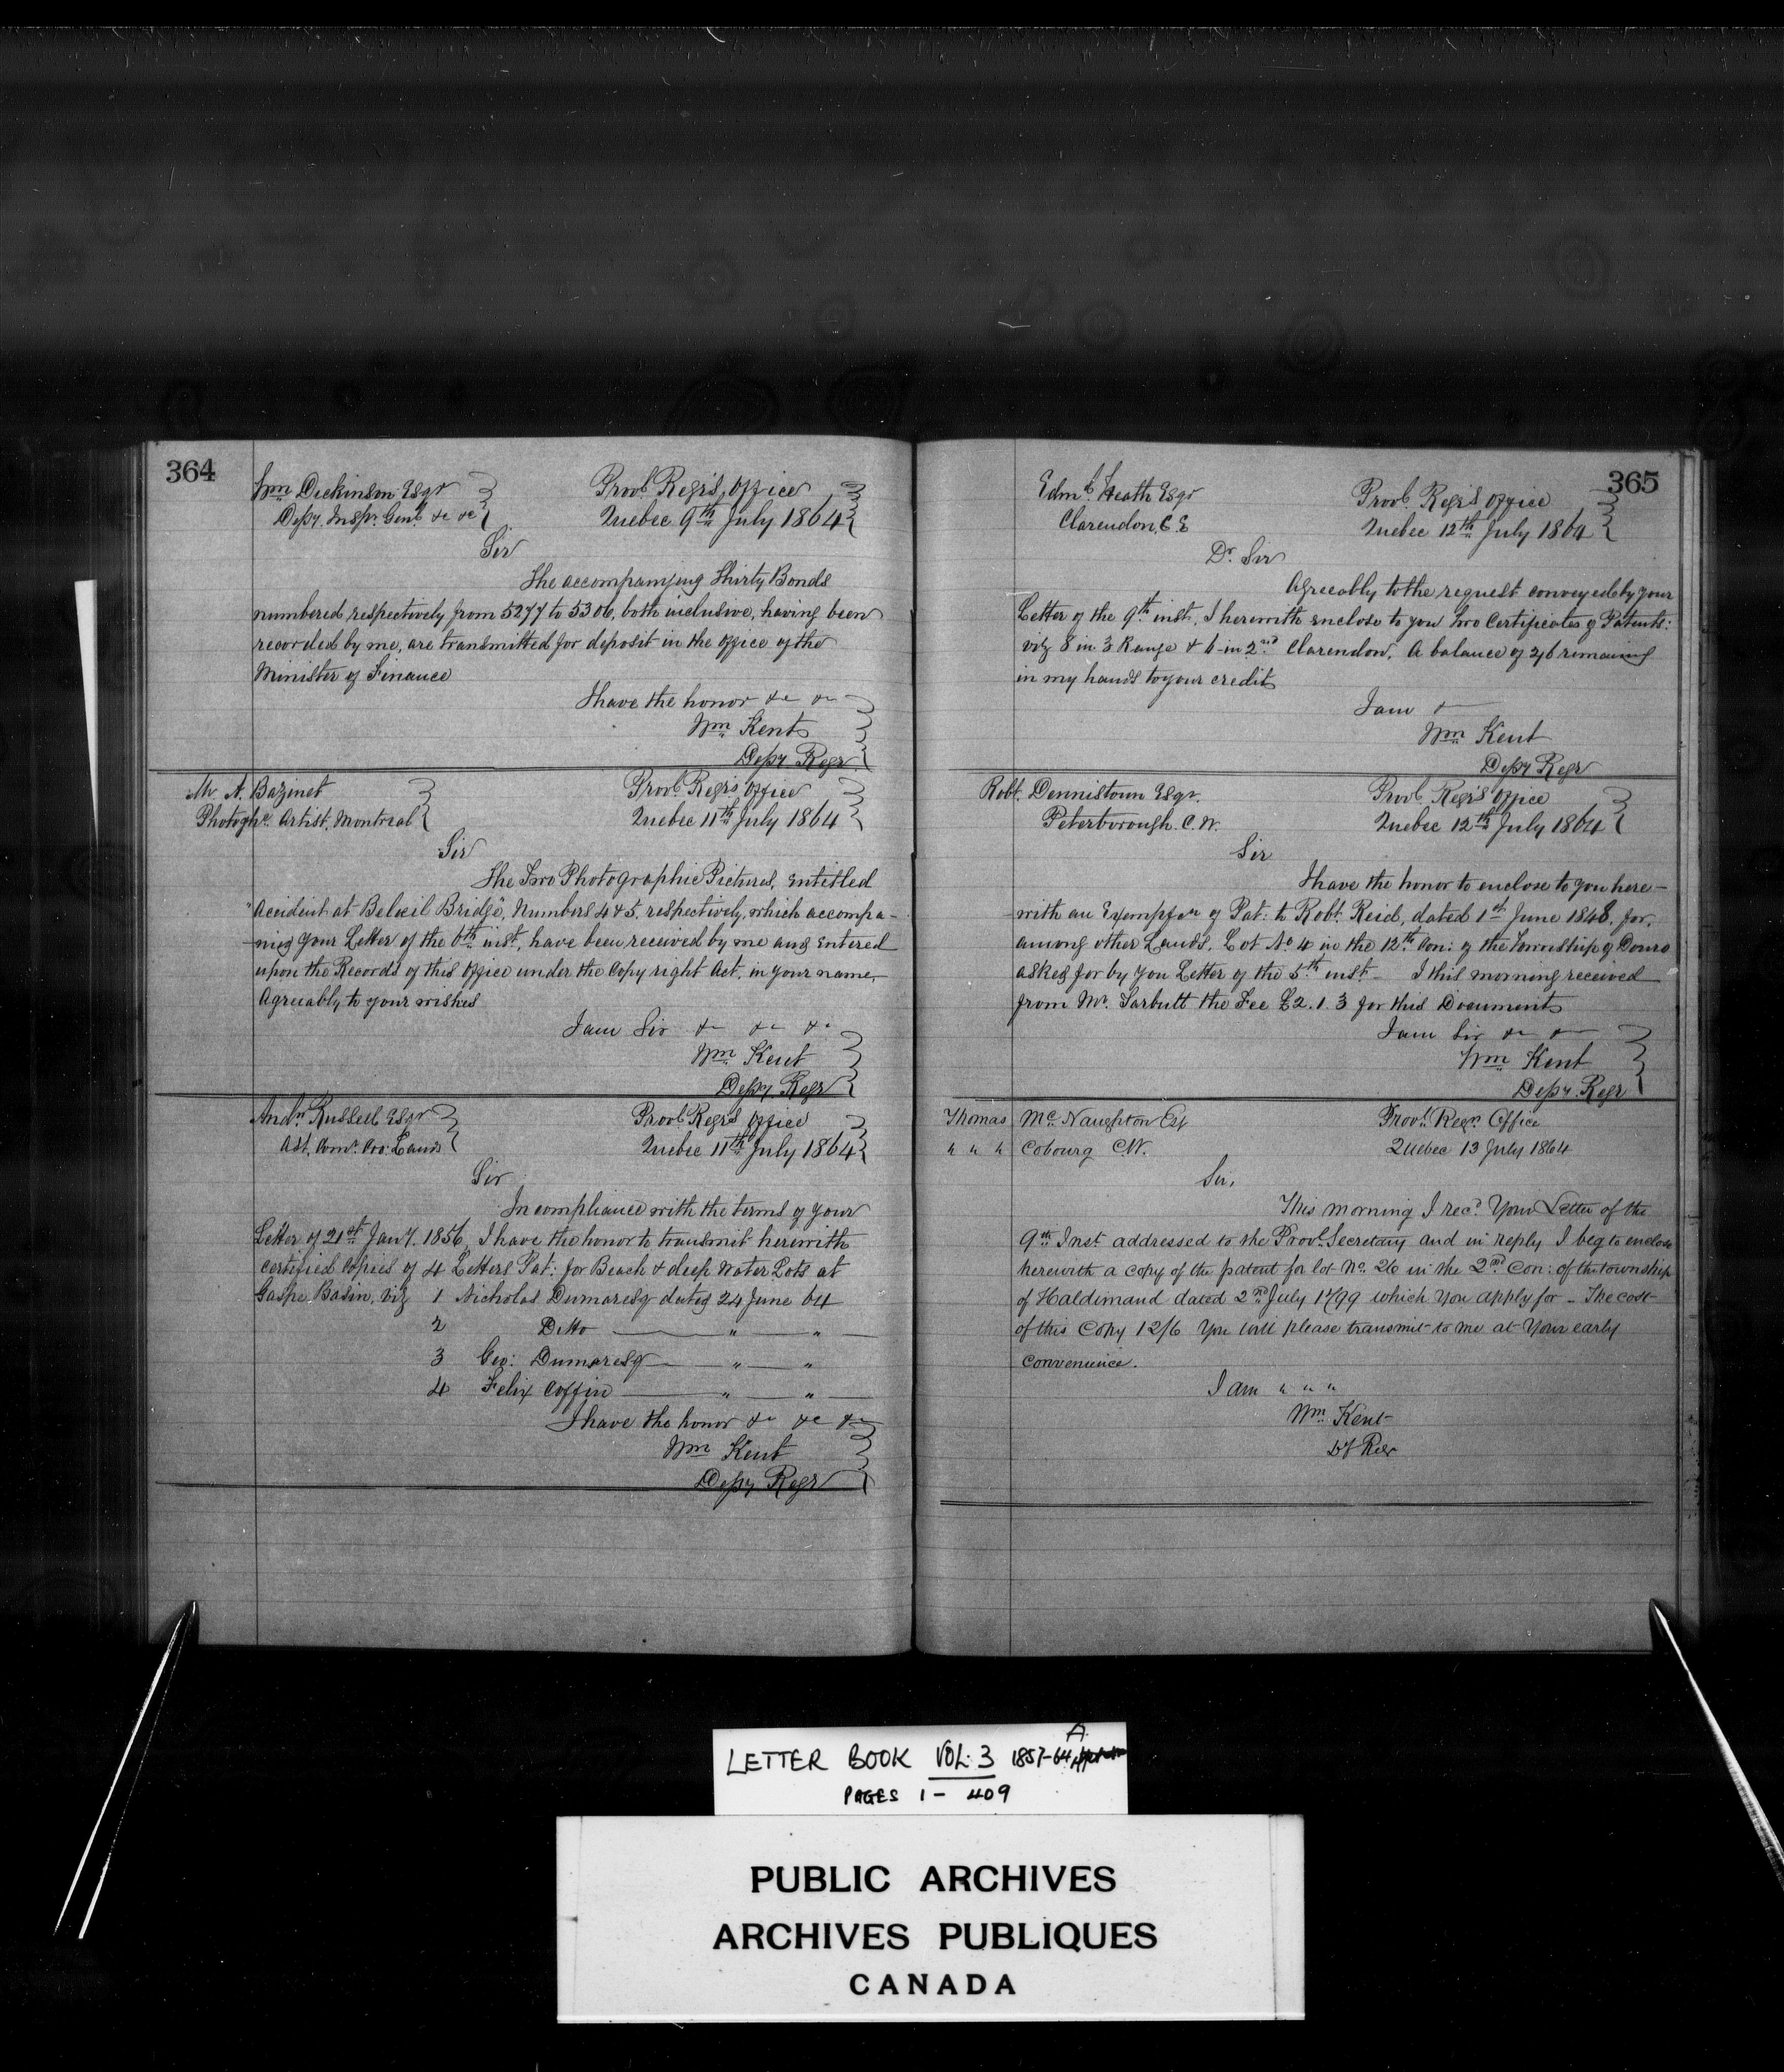 364
Wm Dickinson Esqr
Depy. Inspr. Genl. &c &c
Provl. Regr's. Office
Quebec 9th July 1864
Sir
The accompanying Thirty Bonds
numbered respectively from 5277 to 5306, both inclusive, having been
recorded by me, are transmitted for deposit in the office of the
Minister of Finance
I have the honor &c &c
Wm Kent
Depy Regr
Mr. A. Bazinet
Photoghc. Artist, Montreal
Provl Regr's. Office
Quebec 11th July 1864
Sir
The Two Photographic Pictures, entitled
"Accident at Belœil Bridge", Numbers 4 & 5. respectively, which accompa-
nied your Letter of the 6th inst, have been received by me and entered
upon the Records of this office under the Copy right Act, in your name,
Agreeably to your wishes
I am Sir &c &c &c
Wm Kent
Depy Regr
Andw Russell Esqr
Ast. Comr. Cro: Lands
Provl Regr's Office
Quebec 11th July 1864
Sir
In compliance with the terms of your
Letter of 21st Jany. 1856, I have the honor to transmit herewith
certified copies of 4 Letters Pat: for Beach & deep water Lots at
Gaspe Basin, viz 1 Nicholas Dumaresq dated 24 June 64
2 Ditto " "
3 Geo: Dumaresq " "
4 Felix Coffin " "
I have the honor &c &c &c
Wm Kent
Depy Regr
365
Edmd. Heath Esqr
Clarendon, C E
Provl. Regr's Office
Quebec 12th July 1864
Dr. Sir
Agreeably to the request conveyed by your
Letter of the 9th inst, I herewith enclose to you two Certificates of Patents:
viz 8 in 3 Range & 6 in 2nd Clarendon. A balance of 2/6 remaining
in my hands to your credit
I am &c
Wm Kent
Depy Regr
Robt. Dennistoun Esqr.
Peterborough. C. W.
Provl Regr's Office
Quebec 12th July 1864
Sir
I have the honor to enclose to you here-
with an Exempfon of Pat: to Robt. Reid, dated 1st June 1848. for,
among other Lands, Lot No 4 in the 12th Con: of the Township of Douro
asked for by you Letter of the 5th inst - I this morning received
from Mr. Tarbutt the Fee £2.1.3 for this Document
I am Sir &c &c
Wm Kent
Depy. Regr
Thomas McNaughton Esq
" " " Cobourg C.W.
Provl. Regrs. Office
Quebec 13 July 1864
Sir,
This morning I recd. Your Letter of the
9th Inst addressed to the Provl. Secretary and in reply I beg to enclose
herewith a copy of the patent for lot No. 26 in the 2nd Con: of the township
of Haldimand dated 2nd July 1799 which You apply for - The cost
of this Copy 12/6 You will please transmit to me at Your early
convenience.
I am " " "
Wm Kent
Dy Regr
LETTER BOOK VOL. 3 1857-64 A
PAGES 1 - 409
PUBLIC ARCHIVES
ARCHIVES PUBLIQUES
CANADA